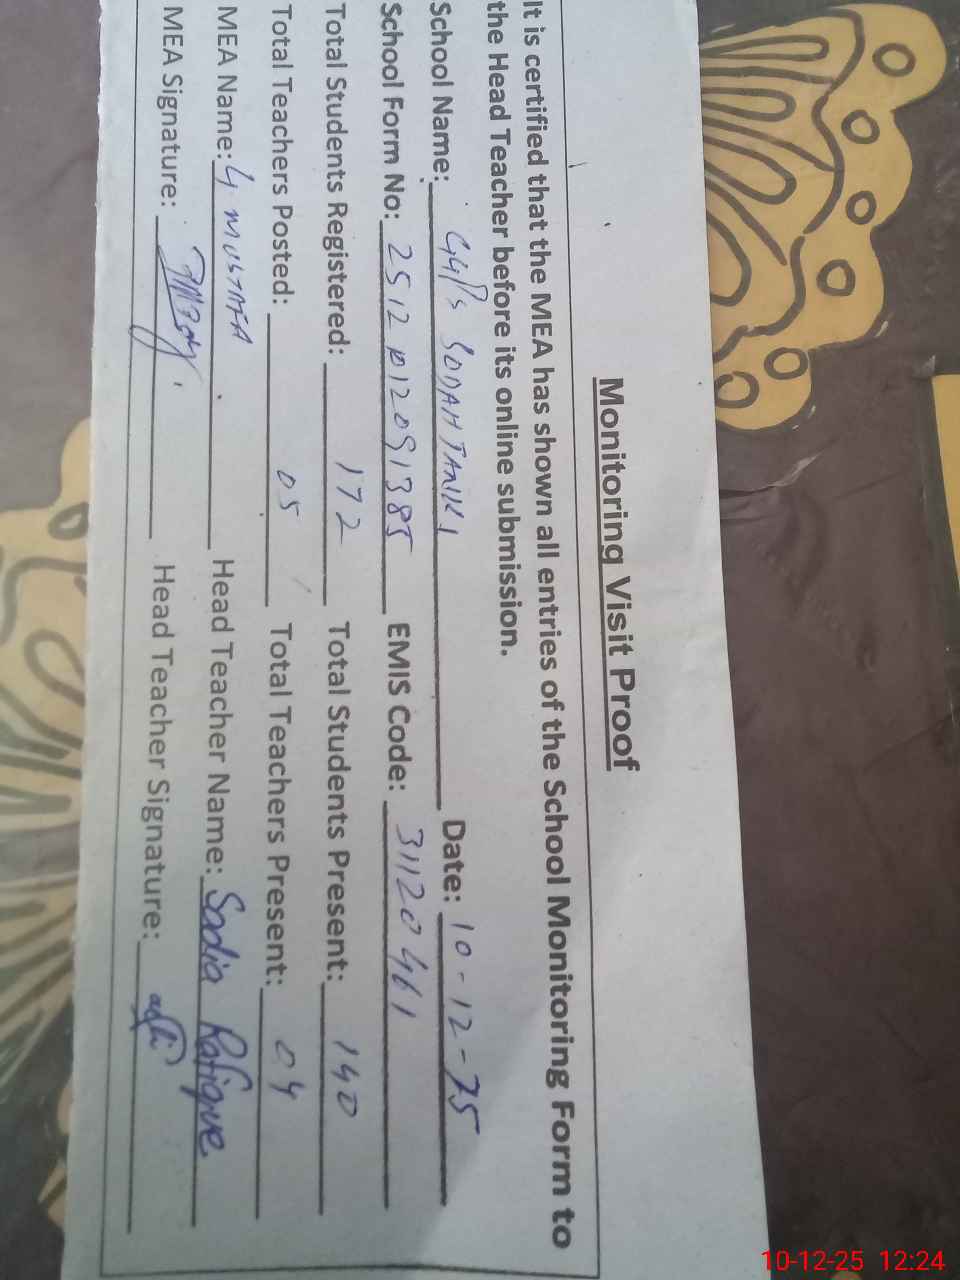 Monitoring Visit Proof
It is certified that the MEA has shown all entries of the School Monitoring Form to
the Head Teacher before its online submission.
School Name: GGPS SODAH TANIKI Date: 10-12-25
School Form No: 25121012091385 EMIS Code: 31120461
Total Students Registered: 172 Total Students Present: 140
Total Teachers Posted: 05 Total Teachers Present: 04
MEA Name: G MUSTAFA Head Teacher Name: Sadia Rafique
MEA Signature: Head Teacher Signature:
10-12-25 12:24